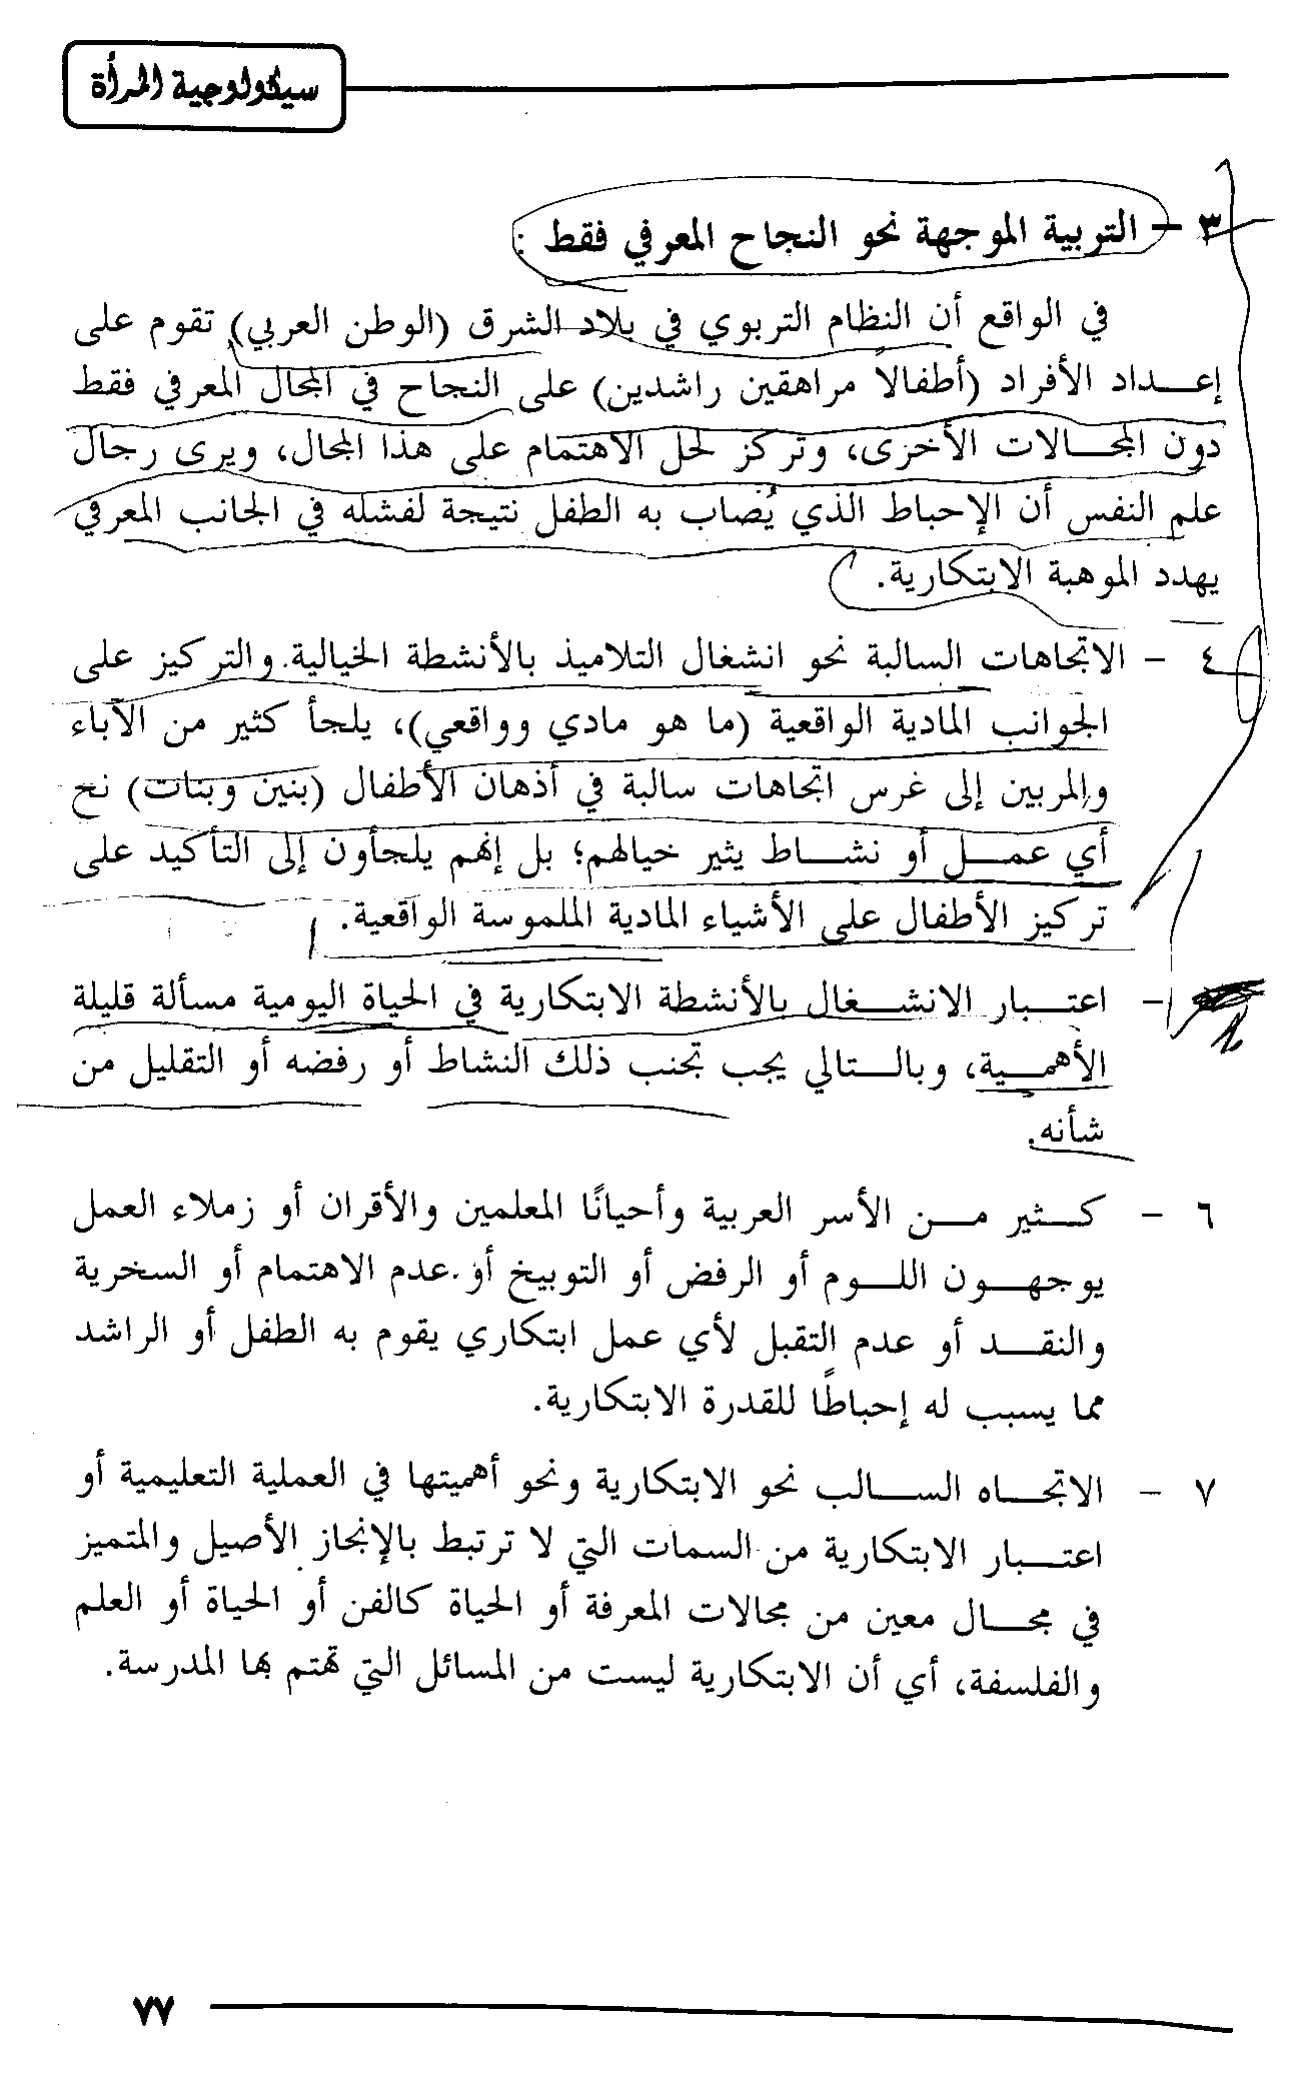 سيكولوجية المرأة
٣ - التربية الموجهة نحو النجاح المعرفي فقط :
في الواقع أن النظام التربوي في بلاد الشرق (الوطن العربي) تقوم على
إعداد الأفراد (أطفالاً مراهقين راشدين) على النجاح في المجال المعرفي فقط
دون المجالات الأخرى، وتركز لحل الاهتمام على هذا المجال، ويرى رجال
علم النفس أن الإحباط الذي يُصاب به الطفل نتيجة لفشله في الجانب المعرفي
يهدد الموهبة الابتكارية.
٤ - الاتجاهات السالبة نحو انشغال التلاميذ بالأنشطة الخيالية والتركيز على
الجوانب المادية الواقعية (ما هو مادي وواقعي)، يلجأ كثير من الآباء
والمربين إلى غرس اتجاهات سالبة في أذهان الأطفال (بنين وبنات) نح
أي عمل أو نشاط يثير خيالهم؛ بل إنهم يلجأون إلى التأكيد على
تركيز الأطفال على الأشياء المادية الملموسة الواقعية.
- اعتبار الانشغال بالأنشطة الابتكارية في الحياة اليومية مسألة قليلة
الأهمية، وبالتالي يجب تجنب ذلك النشاط أو رفضه أو التقليل من
شأنه.
٦ - كثير من الأسر العربية وأحيانًا المعلمين والأقران أو زملاء العمل
يوجهون اللوم أو الرفض أو التوبيخ أو عدم الاهتمام أو السخرية
والنقد أو عدم التقبل لأي عمل ابتكاري يقوم به الطفل أو الراشد
مما يسبب له إحباطًا للقدرة الابتكارية.
٧ - الاتجاه السالب نحو الابتكارية ونحو أهميتها في العملية التعليمية أو
اعتبار الابتكارية من السمات التي لا ترتبط بالإنجاز الأصيل والمتميز
في مجال معين من مجالات المعرفة أو الحياة كالفن أو الحياة أو العلم
والفلسفة، أي أن الابتكارية ليست من المسائل التي تهتم بها المدرسة.
٧٧